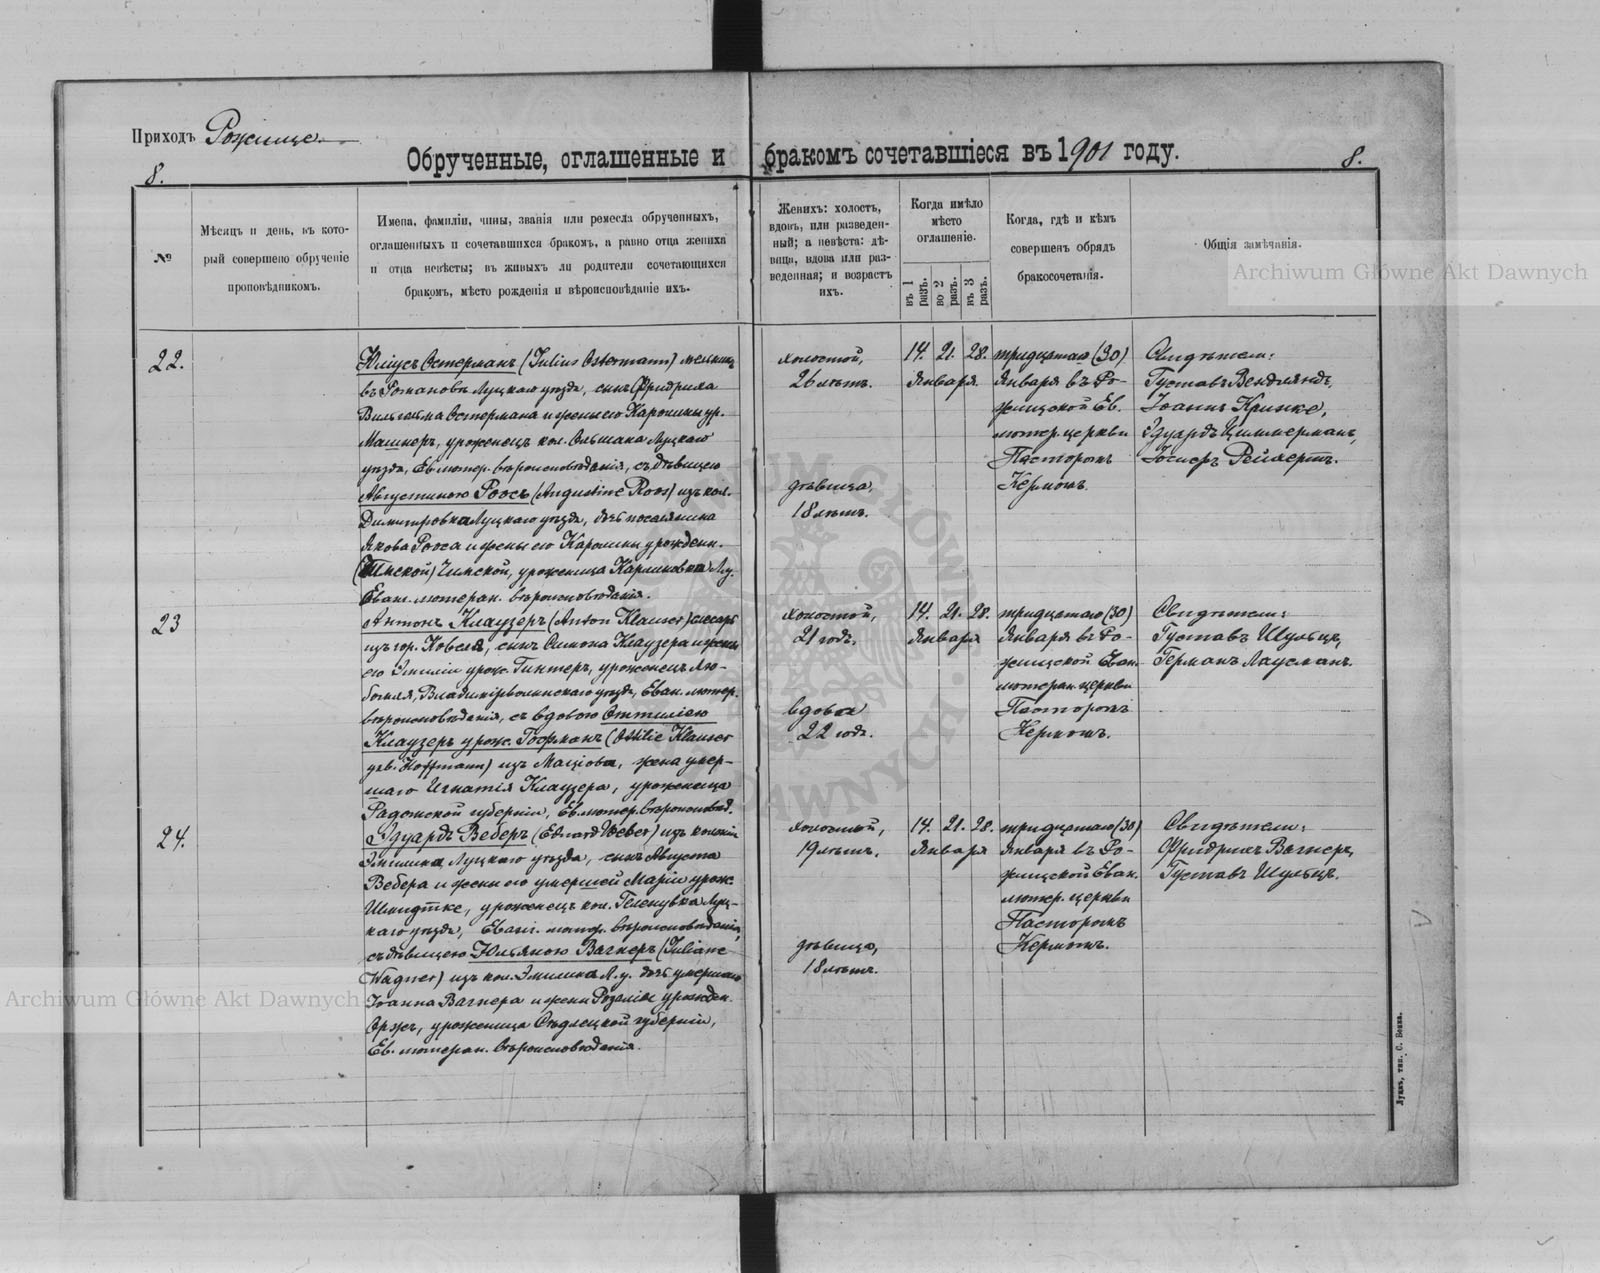 Приходъ Рожище
Обрученные, оглашенные и бракомъ сочетавшіеся въ 1901 году.
8.
8.
№
Мѣсяцъ и день, въ кото-
рый совершено обрученіе
проповѣдникомъ.
Имена, фамиліи, чины, званія или ремесла обрученныхъ,
оглашенныхъ и сочетавшихся бракомъ, а равно отца жениха
и отца невѣсты; въ живыхъ ли родители сочетающихся
бракомъ, мѣсто рожденія и вѣроисповѣданіе ихъ.
Женихъ: холостъ,
вдовъ, или разведен-
ный; а невѣста: дѣ-
вица, вдова или раз-
веденная; и возрастъ
ихъ.
Когда имѣло
мѣсто
оглашеніе.
въ 1 разъ.
во 2 разъ.
въ 3 разъ.
Когда, гдѣ и кѣмъ
совершенъ обрядъ
бракосочетанія.
Общія замѣчанія.
22.
Юліусъ Остерманъ (Julius Ostermann) мельникъ
въ Романовѣ Луцкаго уѣзда, сынъ Фридриха
Вильгельма Остермана и жены его Каролины ур.
Машнеръ, уроженецъ кол. Ольшака Луцкаго
уѣзда, Ев. лютер. вѣроисповѣданія, съ дѣвицею
Августиною Роосъ (Augustine Roos) изъ кол.
Димитровка Луцкаго уѣзда, дочь поселянина
Якова Рооса и жены его Каролины урожденн.
Чинской, уроженица Каролиновка Лу.
Еванг. лютеран. вѣроисповѣданія.
холостой,
26 лѣтъ.
дѣвица,
18 лѣтъ.
14. 21. 28.
Января.
тридцатаго (30)
Января въ Ро-
жищской Ев.
лютер. церкви
Пасторомъ
Кермомъ.
Свидѣтели:
Густавъ Вендляндъ,
Іоаннъ Кринке,
Эдуардъ Циммерманъ,
Іосифъ Рейхертъ.
23
Антонъ Клаузеръ (Anton Klauser) слесарь
изъ гор. Ковеля, сынъ Симона Клаузера и жены
его Эмиліи урож. Гинтеръ, уроженецъ Лю-
бомля, Владимірволынскаго уѣзда, Еван. лютер.
вѣроисповѣданія, съ вдовою Оттиліею
Клаузеръ урож. Гофманъ (Ottilie Klauser
geb. Hoffmann) изъ Маціова, жена умер-
шаго Игнатія Клаузера, уроженица
Радомской губерніи, Ев. лютер. вѣроисповѣд.
холостой,
21 годъ.
вдова
22 года.
14. 21. 28.
Января
тридцатаго (30)
Января въ Ро-
жищской Еван.
лютеран. церкви
Пасторомъ
Кермомъ.
Свидѣтели:
Густавъ Шульцъ,
Германъ Лаусманъ.
24.
Эдуардъ Веберъ (Eduard Weber) изъ колоніи
Эмилина Луцкаго уѣзда, сынъ Августа
Вебера и жены его умершей Маріи урож.
Шмидтке, уроженецъ кол. Геленувка Луц-
каго уѣзда, Еванг. лютер. вѣроисповѣданія,
съ дѣвицею Юльяною Вагнеръ (Juliane
Wagner) изъ кол. Эмилина Л. у. дочь умершаго
Іоанна Вагнера и жены Розаліи урожден.
уроженица Сѣдлецкой губерніи,
Ев. лютеран. вѣроисповѣданія.
холостой,
19 лѣтъ.
дѣвица,
18 лѣтъ.
14. 21. 28.
Января
тридцатаго (30)
Января въ Ро-
жищской Еван.
лютер. церкви
Пасторомъ
Кермомъ.
Свидѣтели:
Фридрихъ Вагнеръ,
Густавъ Шульцъ.
Луцкъ, тип. С. Бокка.
Archiwum Główne Akt Dawnych
Archiwum Główne Akt Dawnych